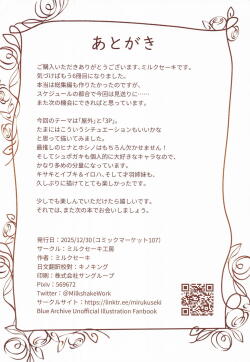 あとがき
ご購入いただきありがとうございます、ミルクセーキです。
気づけばもう6冊目になりました。
本当は総集編も作りたかったのですが、
スケジュールの都合で今回は見送りに……
また次の機会にできればと思っています。
今回のテーマは「屋外」と「3P」。
たまにはこういうシチュエーションもいいかな
と思って描いてみました。
最推しのヒナとホシノはもちろん欠かせません！
そしてシュポガキも個人的に大好きなキャラなので、
かなり多めの分量になっています。
キサキとイブキ＆イロハ、そして才羽姉妹も、
久しぶりに描けてとても楽しかったです。
少しでも楽しんでいただけたら嬉しいです。
それでは、また次の本でお会いしましょう。
発行日：2025/12/30（コミックマーケット107）
サークル：ミルクセーキ工房
作者：ミルクセーキ
日文翻訳校對：キノキング
印刷：株式会社サングループ
Pixiv：569672
Twitter：@MilkshakeWork
サークルサイト：https://linktr.ee/mirukuseki
Blue Archive Unofficial Illustration Fanbook